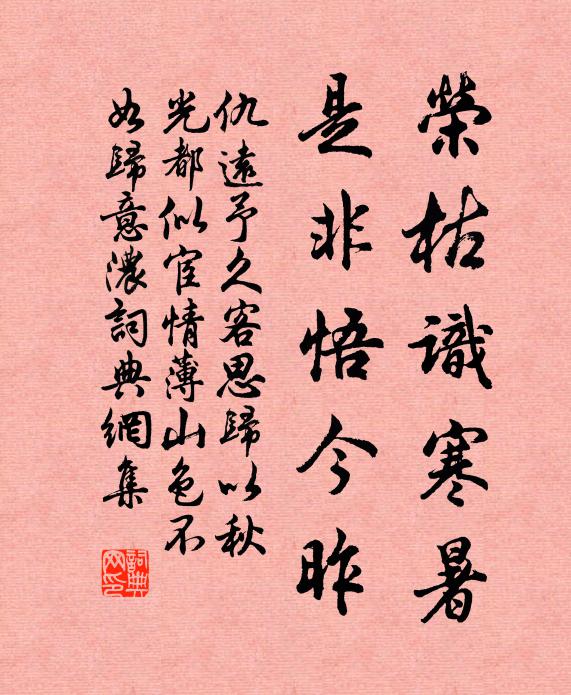 榮枯識寒暑
是非悟今昨
仇遠予久客思歸以秋
光都似宦情薄山色不
如歸意濃詞典網集
詞典網印